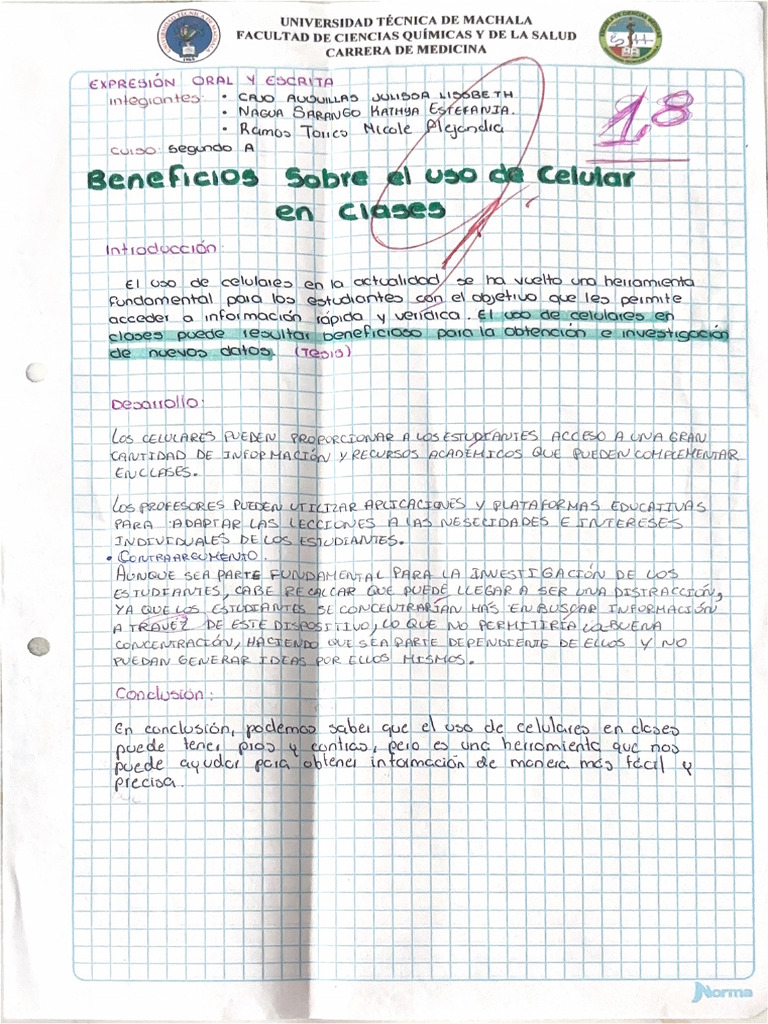 UNIVERSIDAD TÉCNICA DE MACHALA
FACULTAD DE CIENCIAS QUÍMICAS Y DE LA SALUD
CARRERA DE MEDICINA
EXPRESIÓN ORAL Y ESCRITA
Integrantes: • CAJO AUQUILLAS JULISSA LISSBETH
• NAGUA SARANGO KATHYA ESTEFANIA.
• Ramos Torres Nicole Alejandra
CURSO: Segundo A
1,8
Beneficios Sobre el uso de Celular
en Clases
Introducción:
El uso de celulares en la actualidad se ha vuelto una herramienta
fundamental para los estudiantes con el objetivo que les permite
acceder a información rápida y verídica. El uso de celulares en
clases puede resultar beneficioso para la obtención e investigación
de nuevos datos. (Tesis)
Desarrollo:
LOS CELULARES PUEDEN PROPORCIONAR A LOS ESTUDIANTES ACCESO A UNA GRAN
CANTIDAD DE INFORMACIÓN Y RECURSOS ACADÉMICOS QUE PUEDEN COMPLEMENTAR
EN CLASES.
LOS PROFESORES PUEDEN UTILIZAR APLICACIONES Y PLATAFORMAS EDUCATIVAS
PARA ADAPTAR LAS LECCIONES A LAS NESECIDADES E INTERESES
INDIVIDUALES DE LOS ESTUDIANTES.
• CONTRAARGUMENTO.
AUNQUE SEA PARTE FUNDAMENTAL PARA LA INVESTIGACIÓN DE LOS
ESTUDIANTES, CABE RECALCAR QUE PUEDE LLEGAR A SER UNA DISTRACCIÓN,
YA QUE LOS ESTUDIANTES SE CONCENTRARÍAN MAS EN BUSCAR INFORMACIÓN
A TRAVEZ DE ESTE DISPOSITIVO, LO QUE NO PERMITIRÍA LA BUENA
CONCENTRACIÓN, HACIENDO QUE SEA PARTE DEPENDIENTE DE ELLOS Y NO
PUEDAN GENERAR IDEAS POR ELLOS MISMOS.
Conclusión:
En conclusión, podemos saber que el uso de celulares en clases
puede tener pros y contras, pero es una herramienta que nos
puede ayudar para obtener información de manera más fácil y
precisa.
Norma